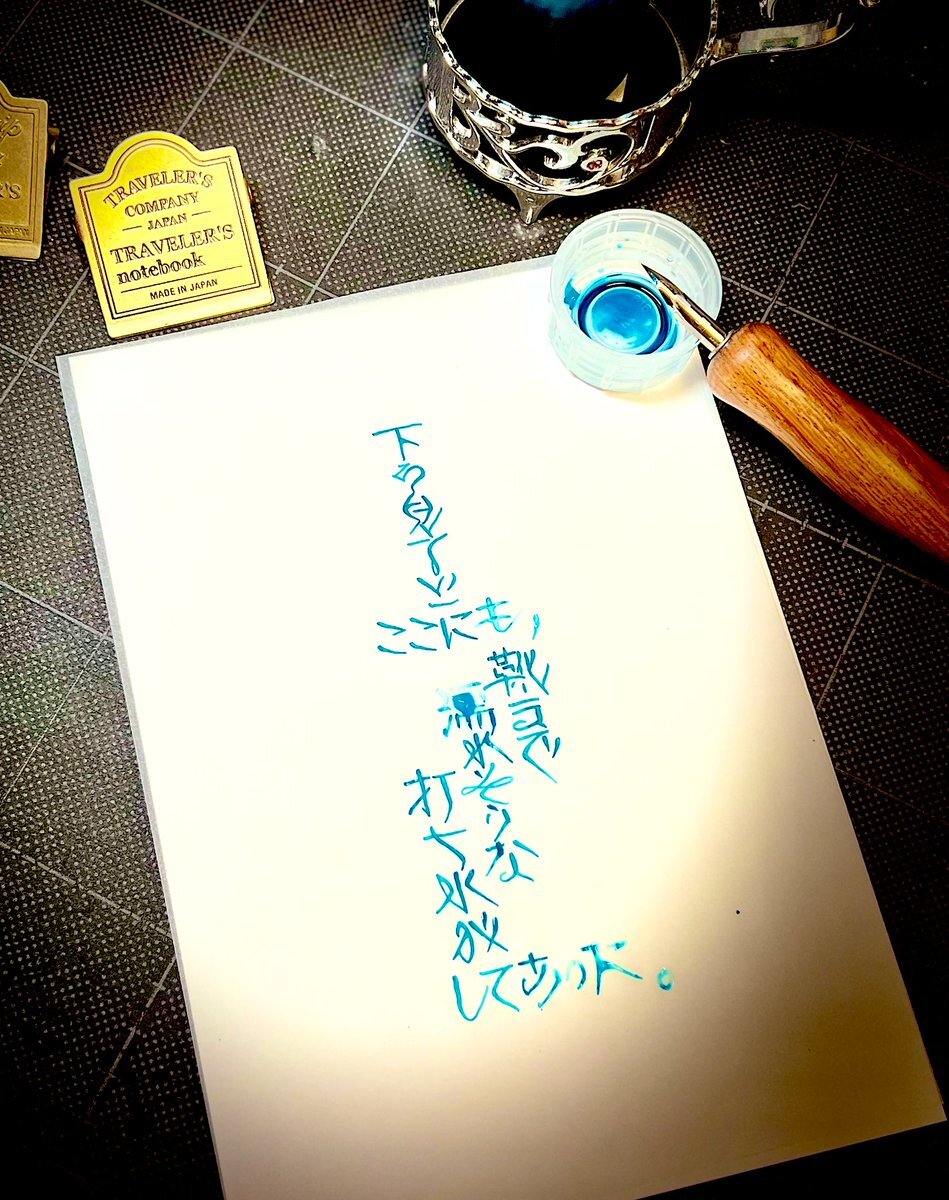 TRAVELER'S
COMPANY
JAPAN
TRAVELER'S
notebook
MADE IN JAPAN
下を見て
ここにも,
靴まで
濡れそうな
打ち水が
してあった。